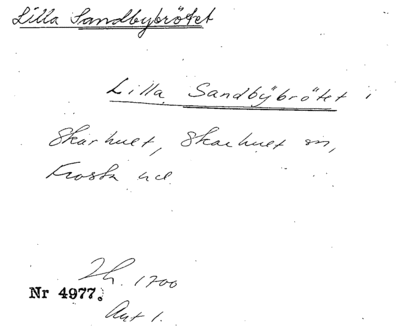 Lilla Sandbybrötet
Lilla Sandbybrötet i
Skarhult, Skarhult sn,
Frosta hd
Lh. 1700
Nr 4977.
Akt 1.